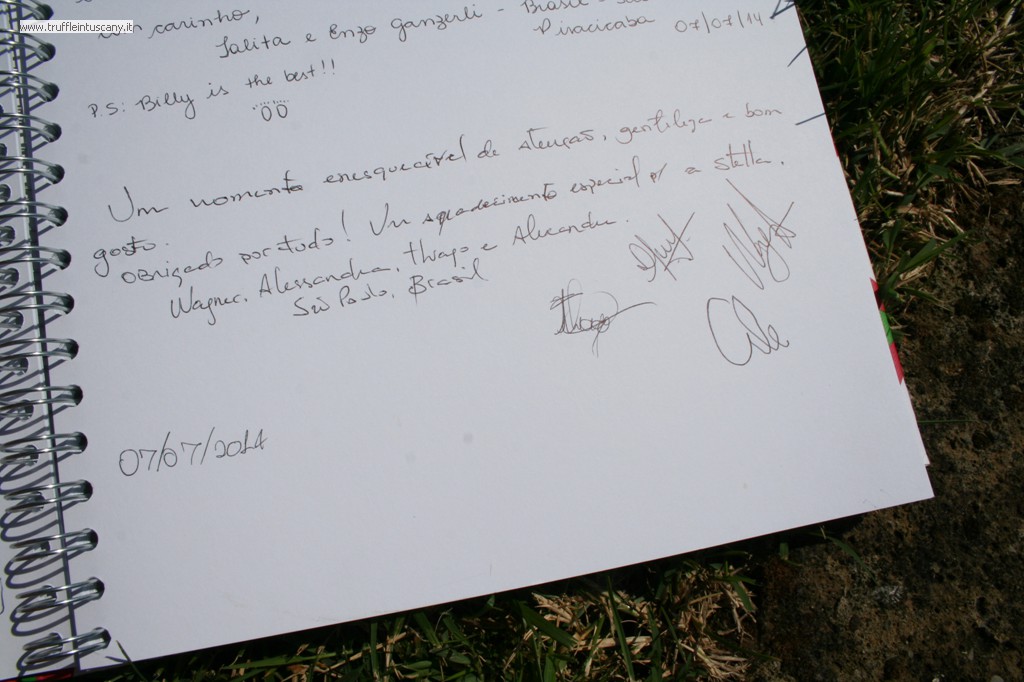 www.truffleintuscany.it
com carinho,
Talita e Enzo Ganzerli - Brasil -
Piracicaba 07/07/14
P.S: Billy is the best!!
Um momento enesquecível de atenção, gentileza e bom
gosto.
Obrigado por tudo! Um agradecimento especial p/ a Stella.
Wagner, Alessandra, Thiago e Alexandre.
São Paulo, Brasil
Thiago
07/07/2014